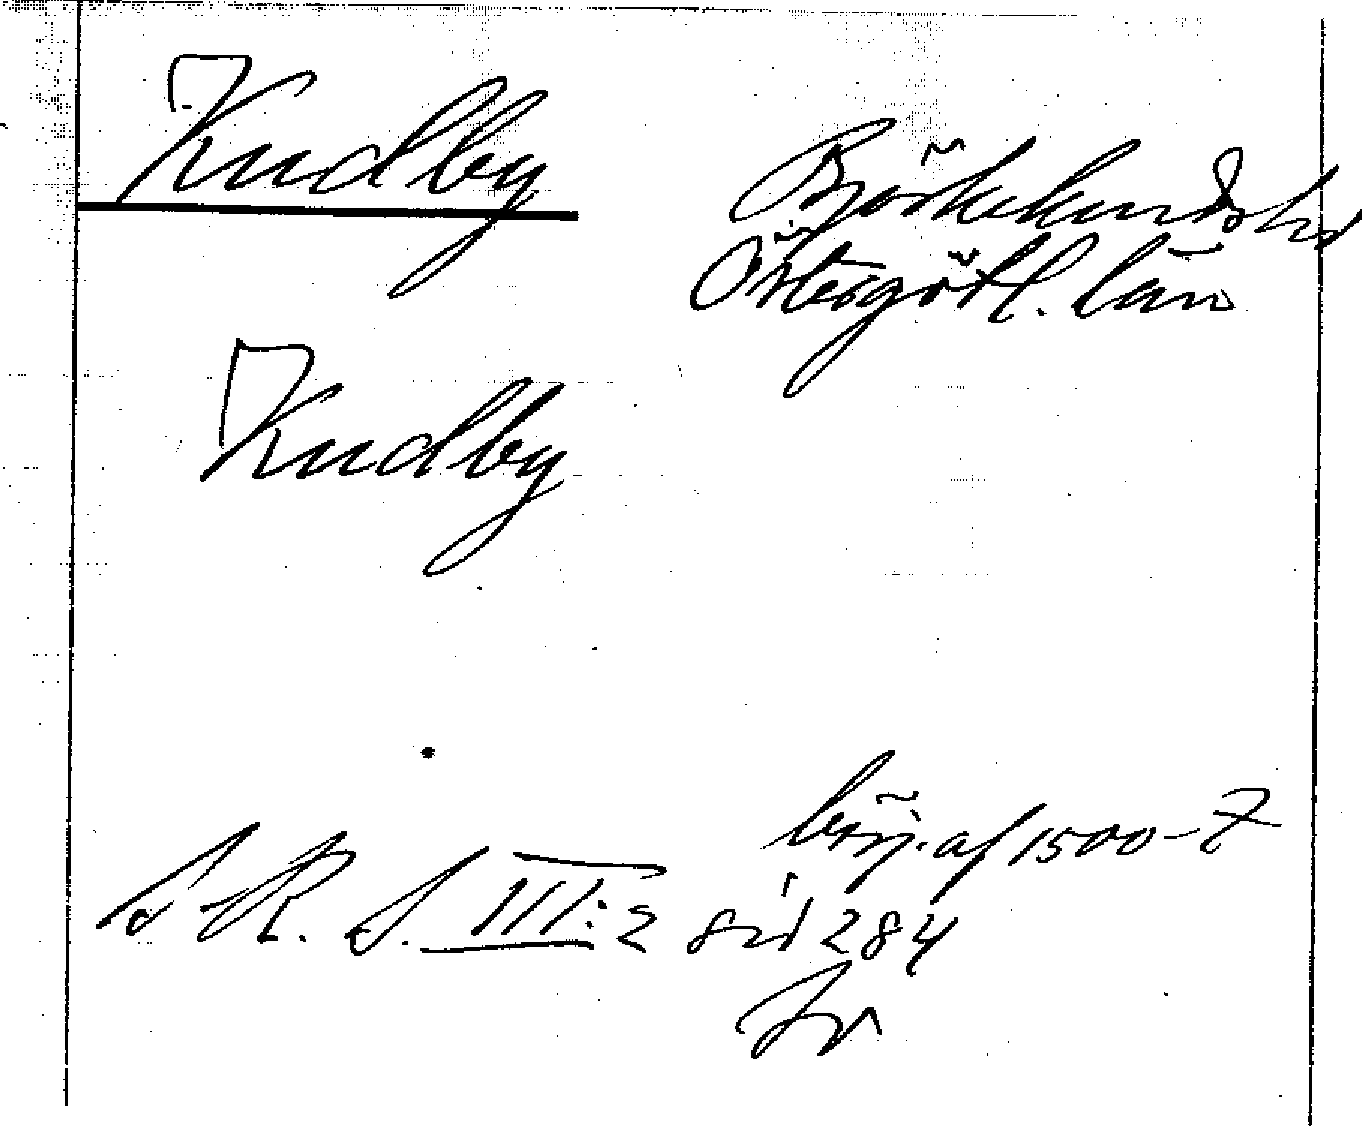 Kudby
Björkekinds hd
Östergötl. län
Kudby
börj. af 1500-t
S. R. S. III:2 sid 284